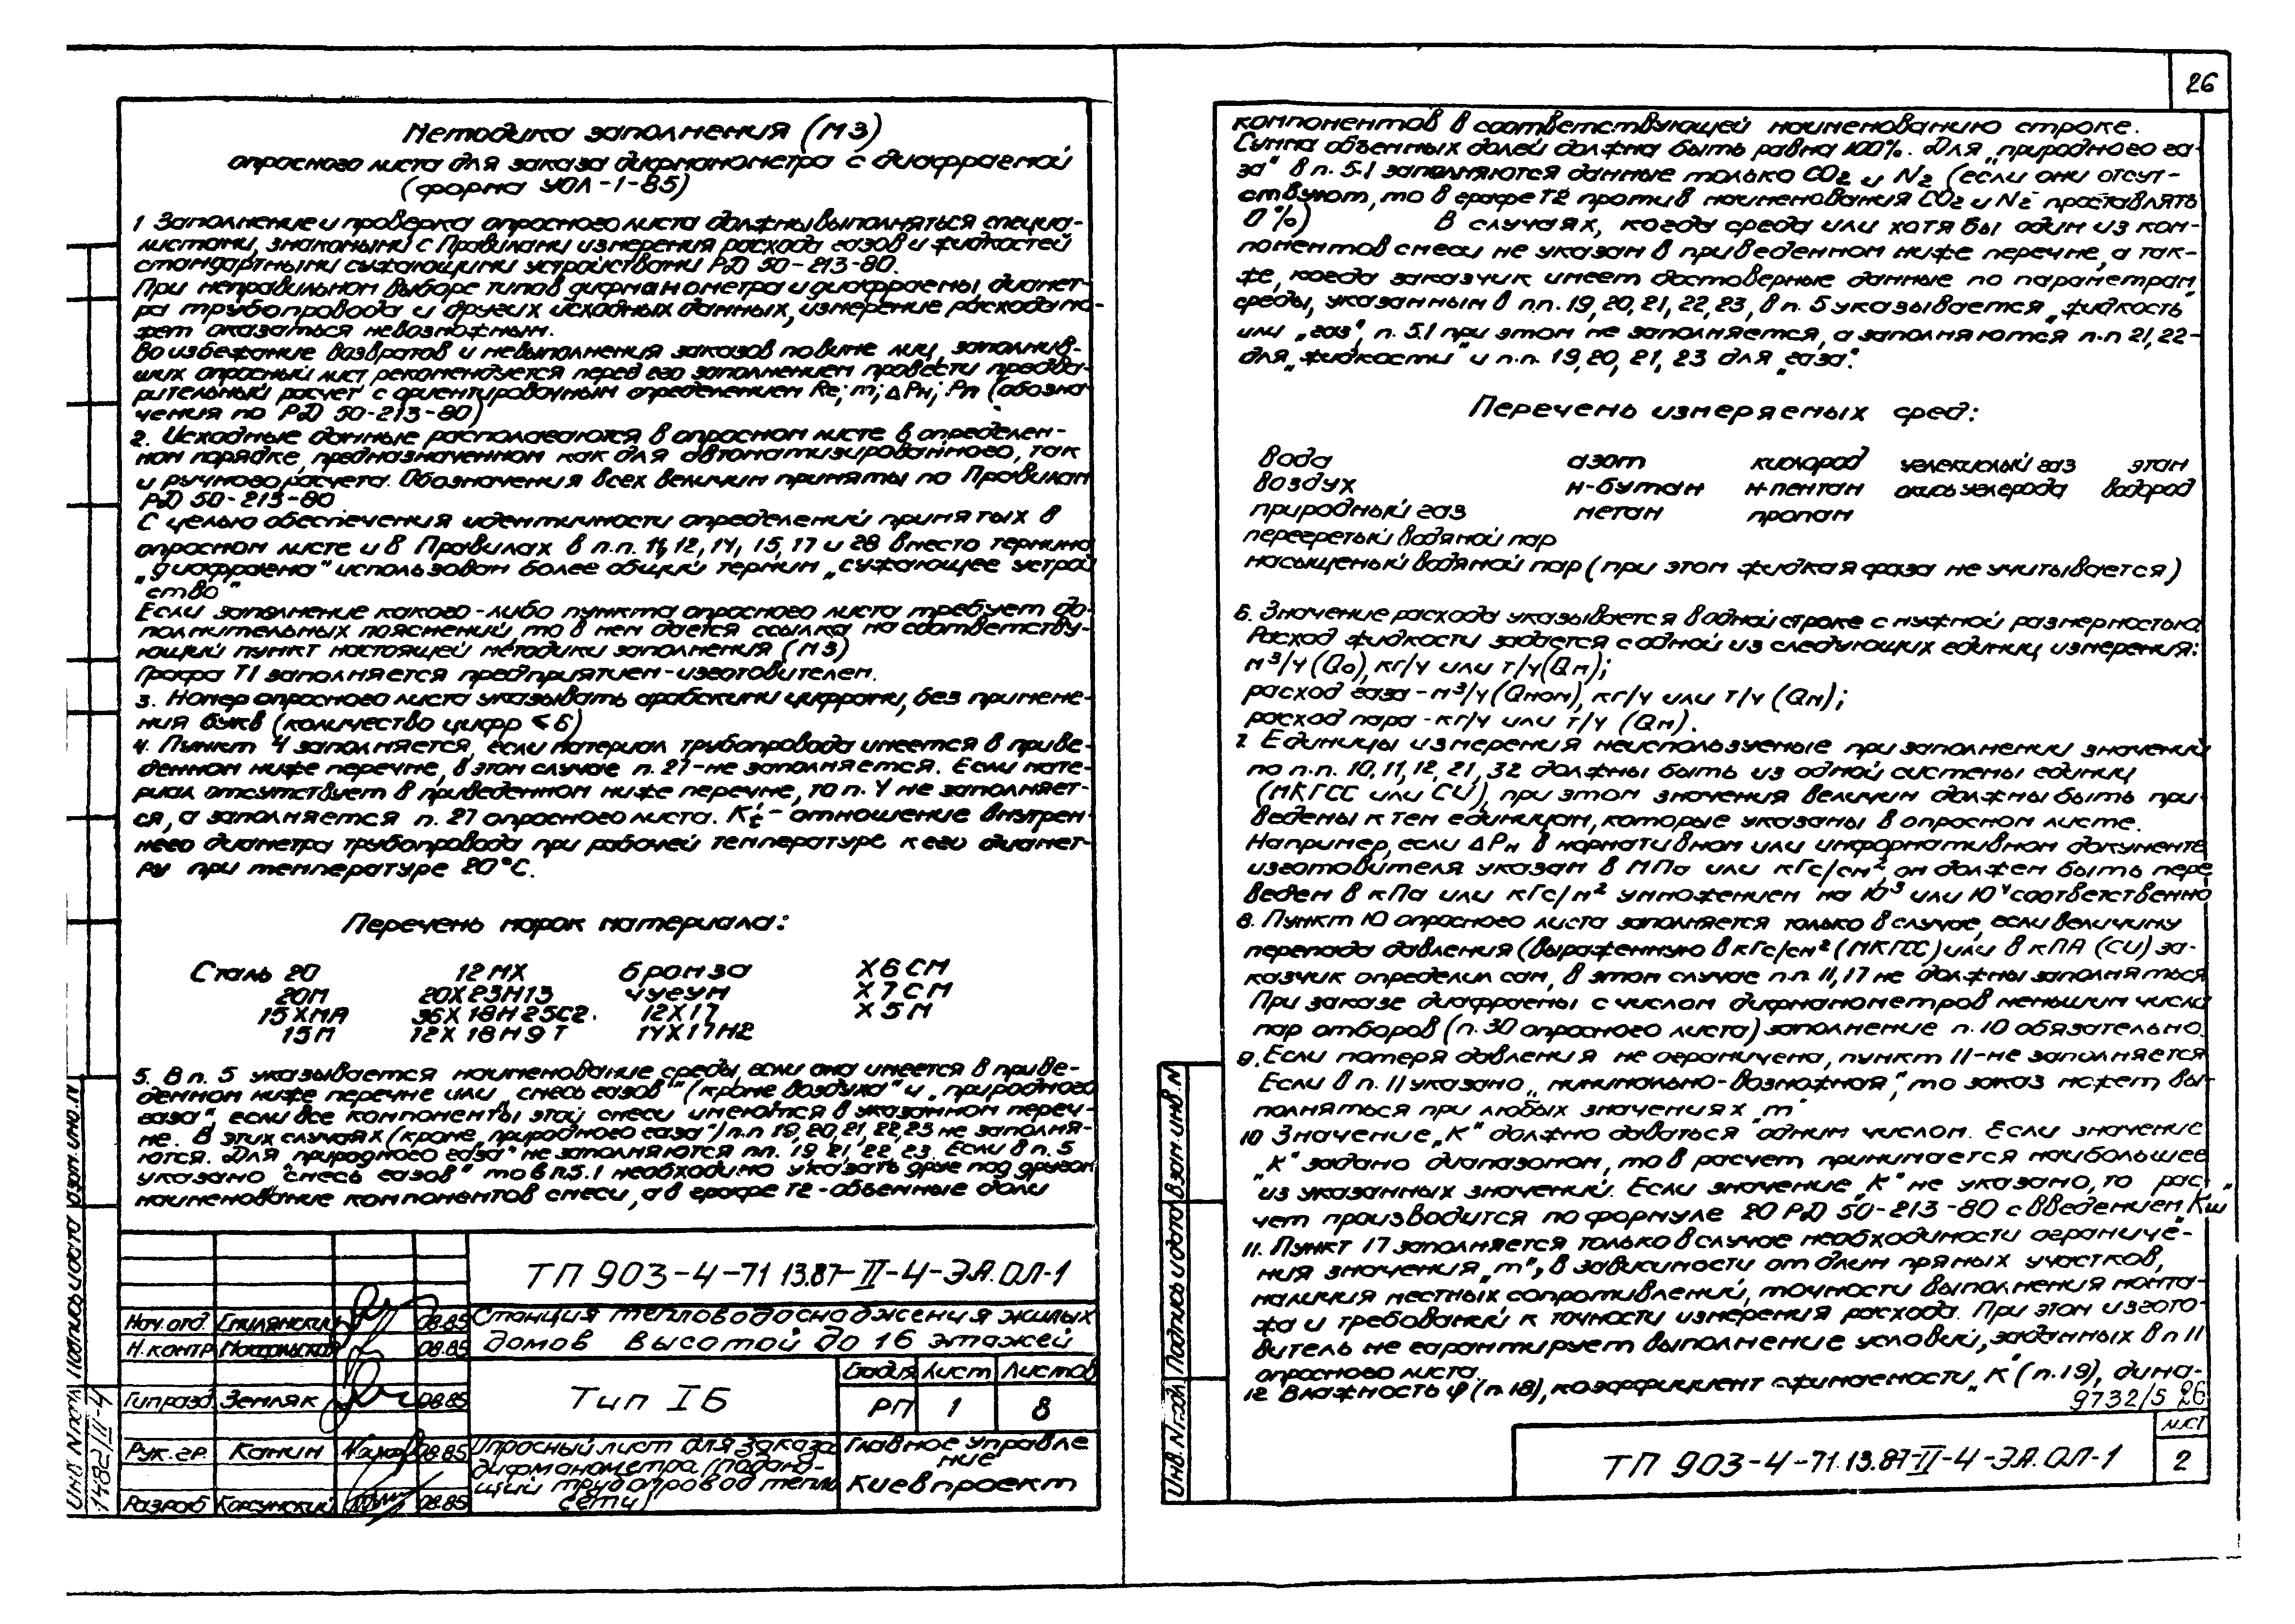 26
Методика заполнения (МЗ)
опросного листа для заказа дифманометра с диафрагмой
(форма УОЛ-1-85)
1 Заполнение и проверка опросного листа должны выполняться специа-
листами, знакомыми с Правилами измерения расхода газов и жидкостей
стандартными сужающими устройствами РД 50-213-80.
При неправильном выборе типов дифманометра и диафрагмы, диамет-
ра трубопровода и других исходных данных, измерение расхода мо-
жет оказаться невозможным.
Во избежание возвратов и невыполнения заказов по вине лиц, заполнив-
ших опросный лист рекомендуется перед его заполнением провести предва-
рительный расчет с ориентировочным определением Re; m; ΔPн; Рп (обозна-
чения по РД 50-213-80)
2. Исходные данные располагаются в опросном листе в определен-
ном порядке, предназначенном как для автоматизированного, так
и ручного расчета. Обозначения всех величин приняты по Правилам
РД 50-213-80
С целью обеспечения идентичности определений принятых в
опросном листе и в Правилах в п.п. 11, 12, 14, 15, 17 и 28 вместо термина
„диафрагма" использован более общий термин „сужающее устрой
ство"
Если заполнение какого-либо пункта опросного листа требует до-
полнительных пояснений, то в нем дается ссылка на соответству-
ющий пункт настоящей методики заполнения (МЗ)
Графа Т1 заполняется предприятием-изготовителем.
3. Номер опросного листа указывать арабскими цифрами, без примене-
ния букв (количество цифр ≤ 6)
4. Пункт 4 заполняется, если материал трубопровода имеется в приве-
денном ниже перечне, в этом случае п. 27-не заполняется. Если мате-
риал отсутствует в приведенном ниже перечне, то п. 4 не заполняет-
ся, а заполняется п. 27 опросного листа. K't - отношение внутрен
него диаметра трубопровода при рабочей температуре к его диамет-
ру при температуре 20°С.
Перечень марок материала:
Сталь 20 12МХ бронза Х6СМ
20М 20Х23Н13 чугун Х7СМ
15ХМА 36Х18Н25С2. 12Х17 Х5М
15М 12Х18Н9Т 14Х17Н2
5. В п. 5 указывается наименование среды, если она имеется в приве-
денном ниже перечне или „смесь газов" (кроме воздуха" и „природного
газа", если все компоненты этой смеси имеются в указанном переч-
не. В этих случаях (кроме „природного газа") п.п 19, 20, 21, 22, 23 не заполня-
ются. Для „природного газа" не заполняются пп. 19, 21, 22, 23. Если в п. 5
указано "смесь газов" то в п.5.1 необходимо указать друг под другом
наименование компонентов смеси, а в графе Т2-объемные доли
ТП 903-4-71 13.87-II-4-ЭА.ОЛ-1
Нач. отд. Смилянский 08.85
Н.контр 08.85
Гип разд. Земляк 08.85
Рук. гр. Канин 08.85
Разраб Корсунский 08.85
Станция тепловодоснабжения жилых
домов высотой до 16 этажей
Тип IБ
Стадия Лист Листов
РП 1 8
Опросный лист для заказа
дифманометра (подаю-
щий трубопровод тепло
сети)
Главное управле
ние
Киевпроект
Инв. N подл. Подпись и дата Взам. инв. N
1482/III-4
компонентов в соответствующей наименованию строке.
Сумма объемных долей должна быть равна 100%. Для „природного га-
за" в п. 5.1 заполняются данные только СО2 и N2 (если они отсут-
ствуют, то в графе Т2 против наименования СО2 и N2 проставлять
0%) В случаях, когда среда или хотя бы один из ком-
понентов смеси не указан в приведенном ниже перечне, а так-
же, когда заказчик имеет достоверные данные по параметрам
среды, указанным в п.п. 19, 20, 21, 22, 23, в п. 5 указывается „жидкость"
или „газ", п. 5.1 при этом не заполняется, а заполняются п.п 21, 22-
для „жидкости" и п.п. 19, 20, 21, 23 для „газа".
Перечень измеряемых сред:
вода азот кислород углекислый газ этан
воздух н-бутан н-пентан окись углерода водород
природный газ метан пропан
перегретый водяной пар
насыщеный водяной пар (при этом жидкая фаза не учитывается)
6. Значение расхода указывается в одной строке с нужной размерностью.
Расход жидкости задается с одной из следующих единиц измерения:
м³/ч (Qo), кг/ч или т/ч(Qм);
расход газа - м³/ч (Qном), кг/ч или т/ч (Qм);
расход пара - кг/ч или т/ч (Qм).
7 Единицы измерения неиспользуемые при заполнении значений
по п.п. 10, 11, 12, 21, 32 должны быть из одной системы единиц
(МКГСС или СИ), при этом значения величин должны быть при-
ведены к тем единицам, которые указаны в опросном листе.
Например, если ΔРн в нормативном или информативном документе
изготовителя указан в МПа или кГс/см², он должен быть пере
веден в кПа или кГс/м² умножением на 10³ или 10⁴ соответственно
8. Пункт 10 опросного листа заполняется только в случае, если величину
перепада давления (выраженную в кГс/см² (МКГСС) или в кПА (СИ) за-
казчик определил сам, в этом случае п.п. 11, 17 не должны заполняться
При заказе диафрагмы с числом дифманометров меньшим числа
пар отборов (п. 30 опросного листа) заполнение п. 10 обязательно.
9. Если потеря давления не ограничена, пункт 11-не заполняется
Если в п. 11 указано „минимально-возможная", то заказ может вы-
полняться при любых значениях „m"
10 Значение „К" должно даваться одним числом. Если значение
„К" задано диапазоном, то в расчет принимается наибольшее
из указанных значений. Если значение „К" не указано, то рас-
чет производится по формуле 20 РД 50-213-80 с введением „Кш"
11. Пункт 17 заполняется только в случае необходимости ограниче-
ния значения „m", в зависимости от длин прямых участков,
наличия местных сопротивлений, точности выполнения монта-
жа и требований к точности измерения расхода. При этом изгото-
витель не гарантирует выполнение условий, заданных в п 11
опросного листа.
12 Влажность φ (п. 18), коэффициент сжимаемости „К" (п. 19), дина-
9732/5 26
ТП 903-4-71.13.87-II-4-ЭА.ОЛ-1
Лист
2
Инв. N подл. Подпись и дата Взам. инв. N